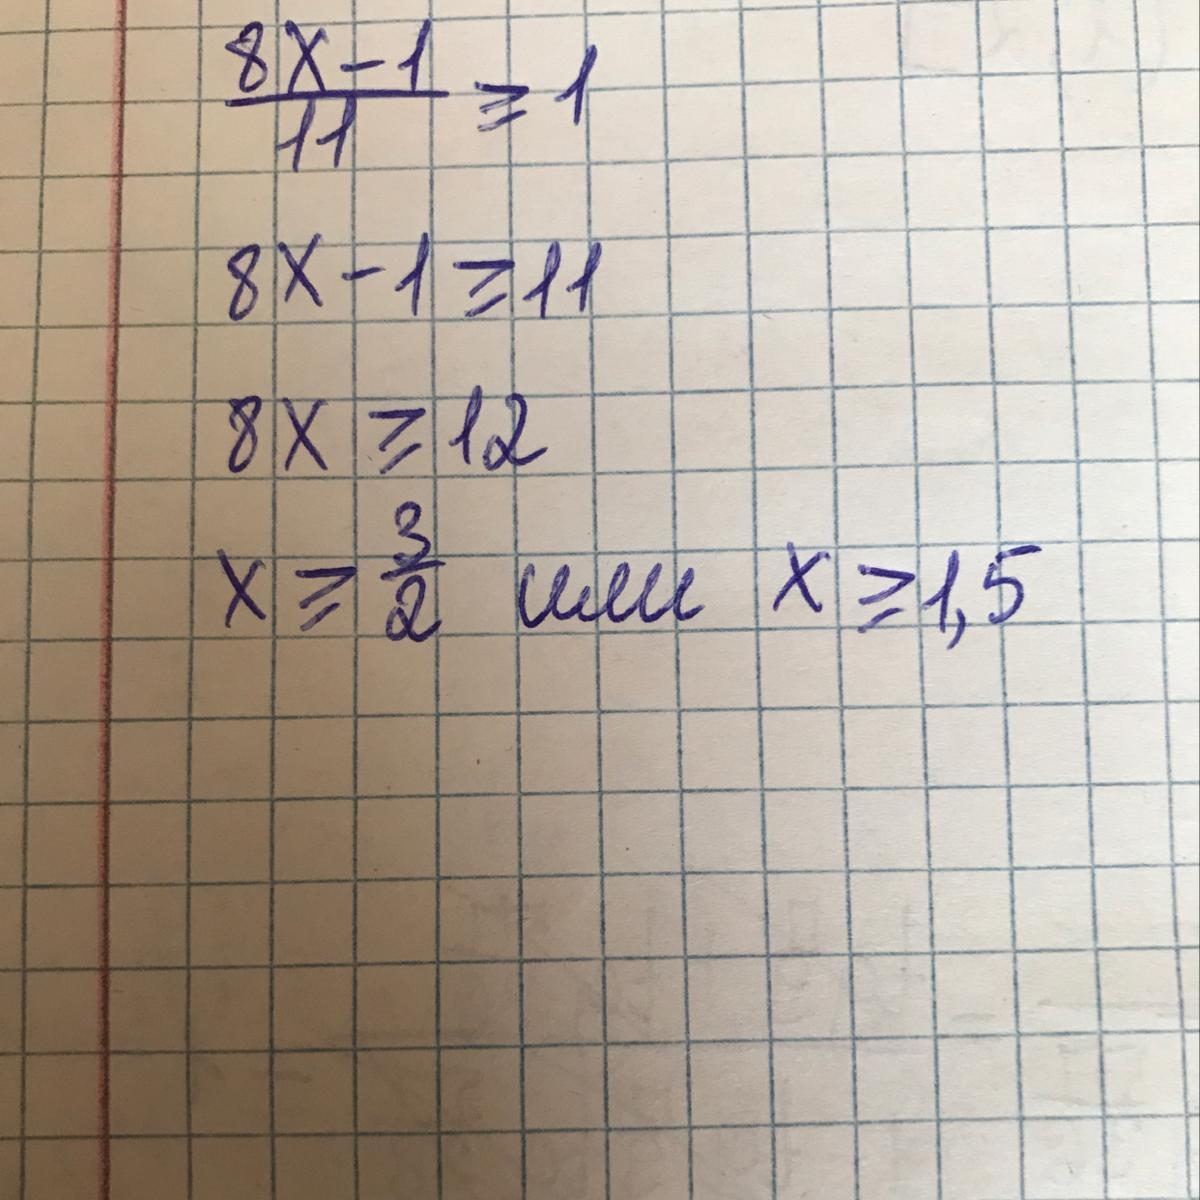 8x-1/11 ≥ 1
8x-1 ≥ 11
8x ≥ 12
x ≥ 3/2 или x ≥ 1,5